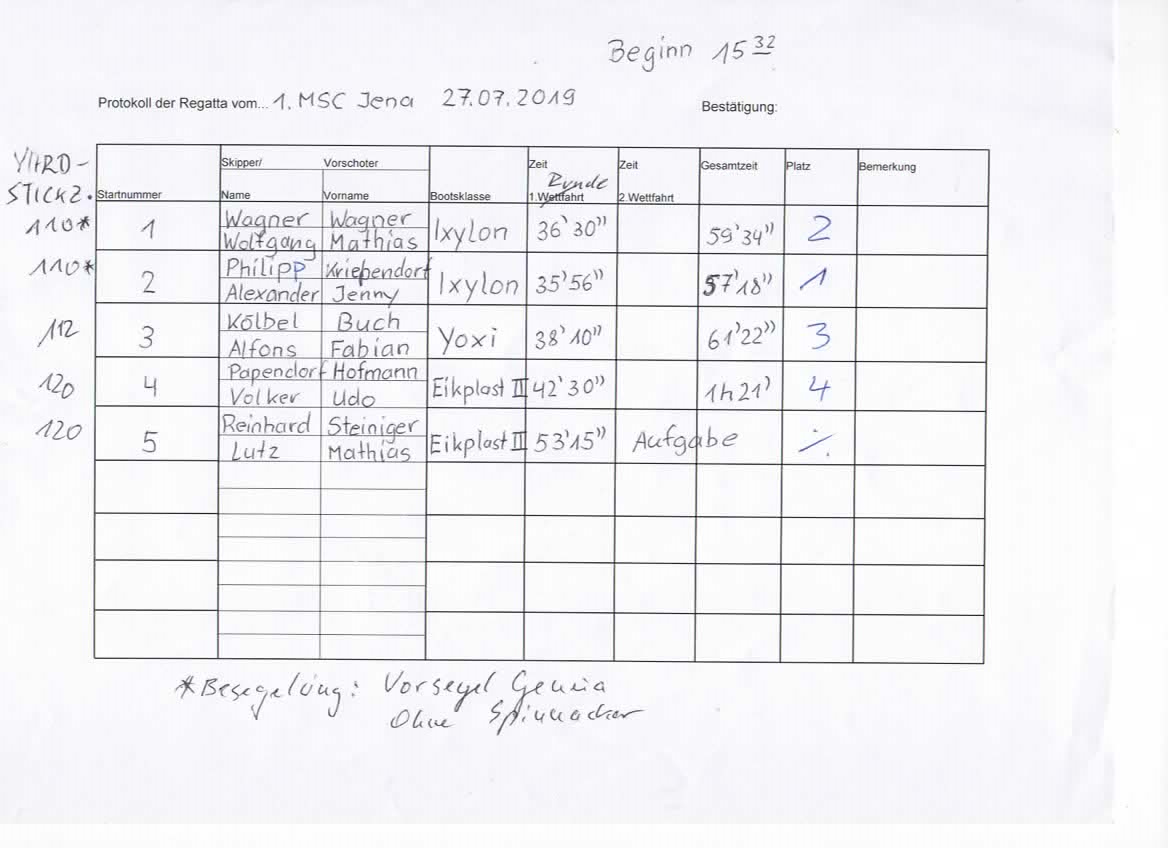 Beginn 15 32
Protokoll der Regatta vom... 1. MSC Jena 27.07.2019 Bestätigung:
YARD-
STICKZ.
Skipper/ Vorschoter Zeit Zeit Gesamtzeit Platz Bemerkung
Runde
Startnummer Name Vorname Bootsklasse 1.Wettfahrt 2.Wettfahrt
110* 1 Wagner Wagner Ixylon 36' 30" 59'34" 2
Wolfgang Mathias
110* 2 Philipp Kriependorf Ixylon 35'56" 57'18" 1
Alexander Jenny
112 3 Kölbel Buch Yoxi 38'10" 61'22" 3
Alfons Fabian
120 4 Papendorf Hofmann Eikplast II 42'30" 1h21' 4
Volker Udo
120 5 Reinhard Steiniger Eikplast II 53'15" Aufgabe ./.
Lutz Mathias
*Besegelung: Vorsegel Genua
Ohne Spinnacker